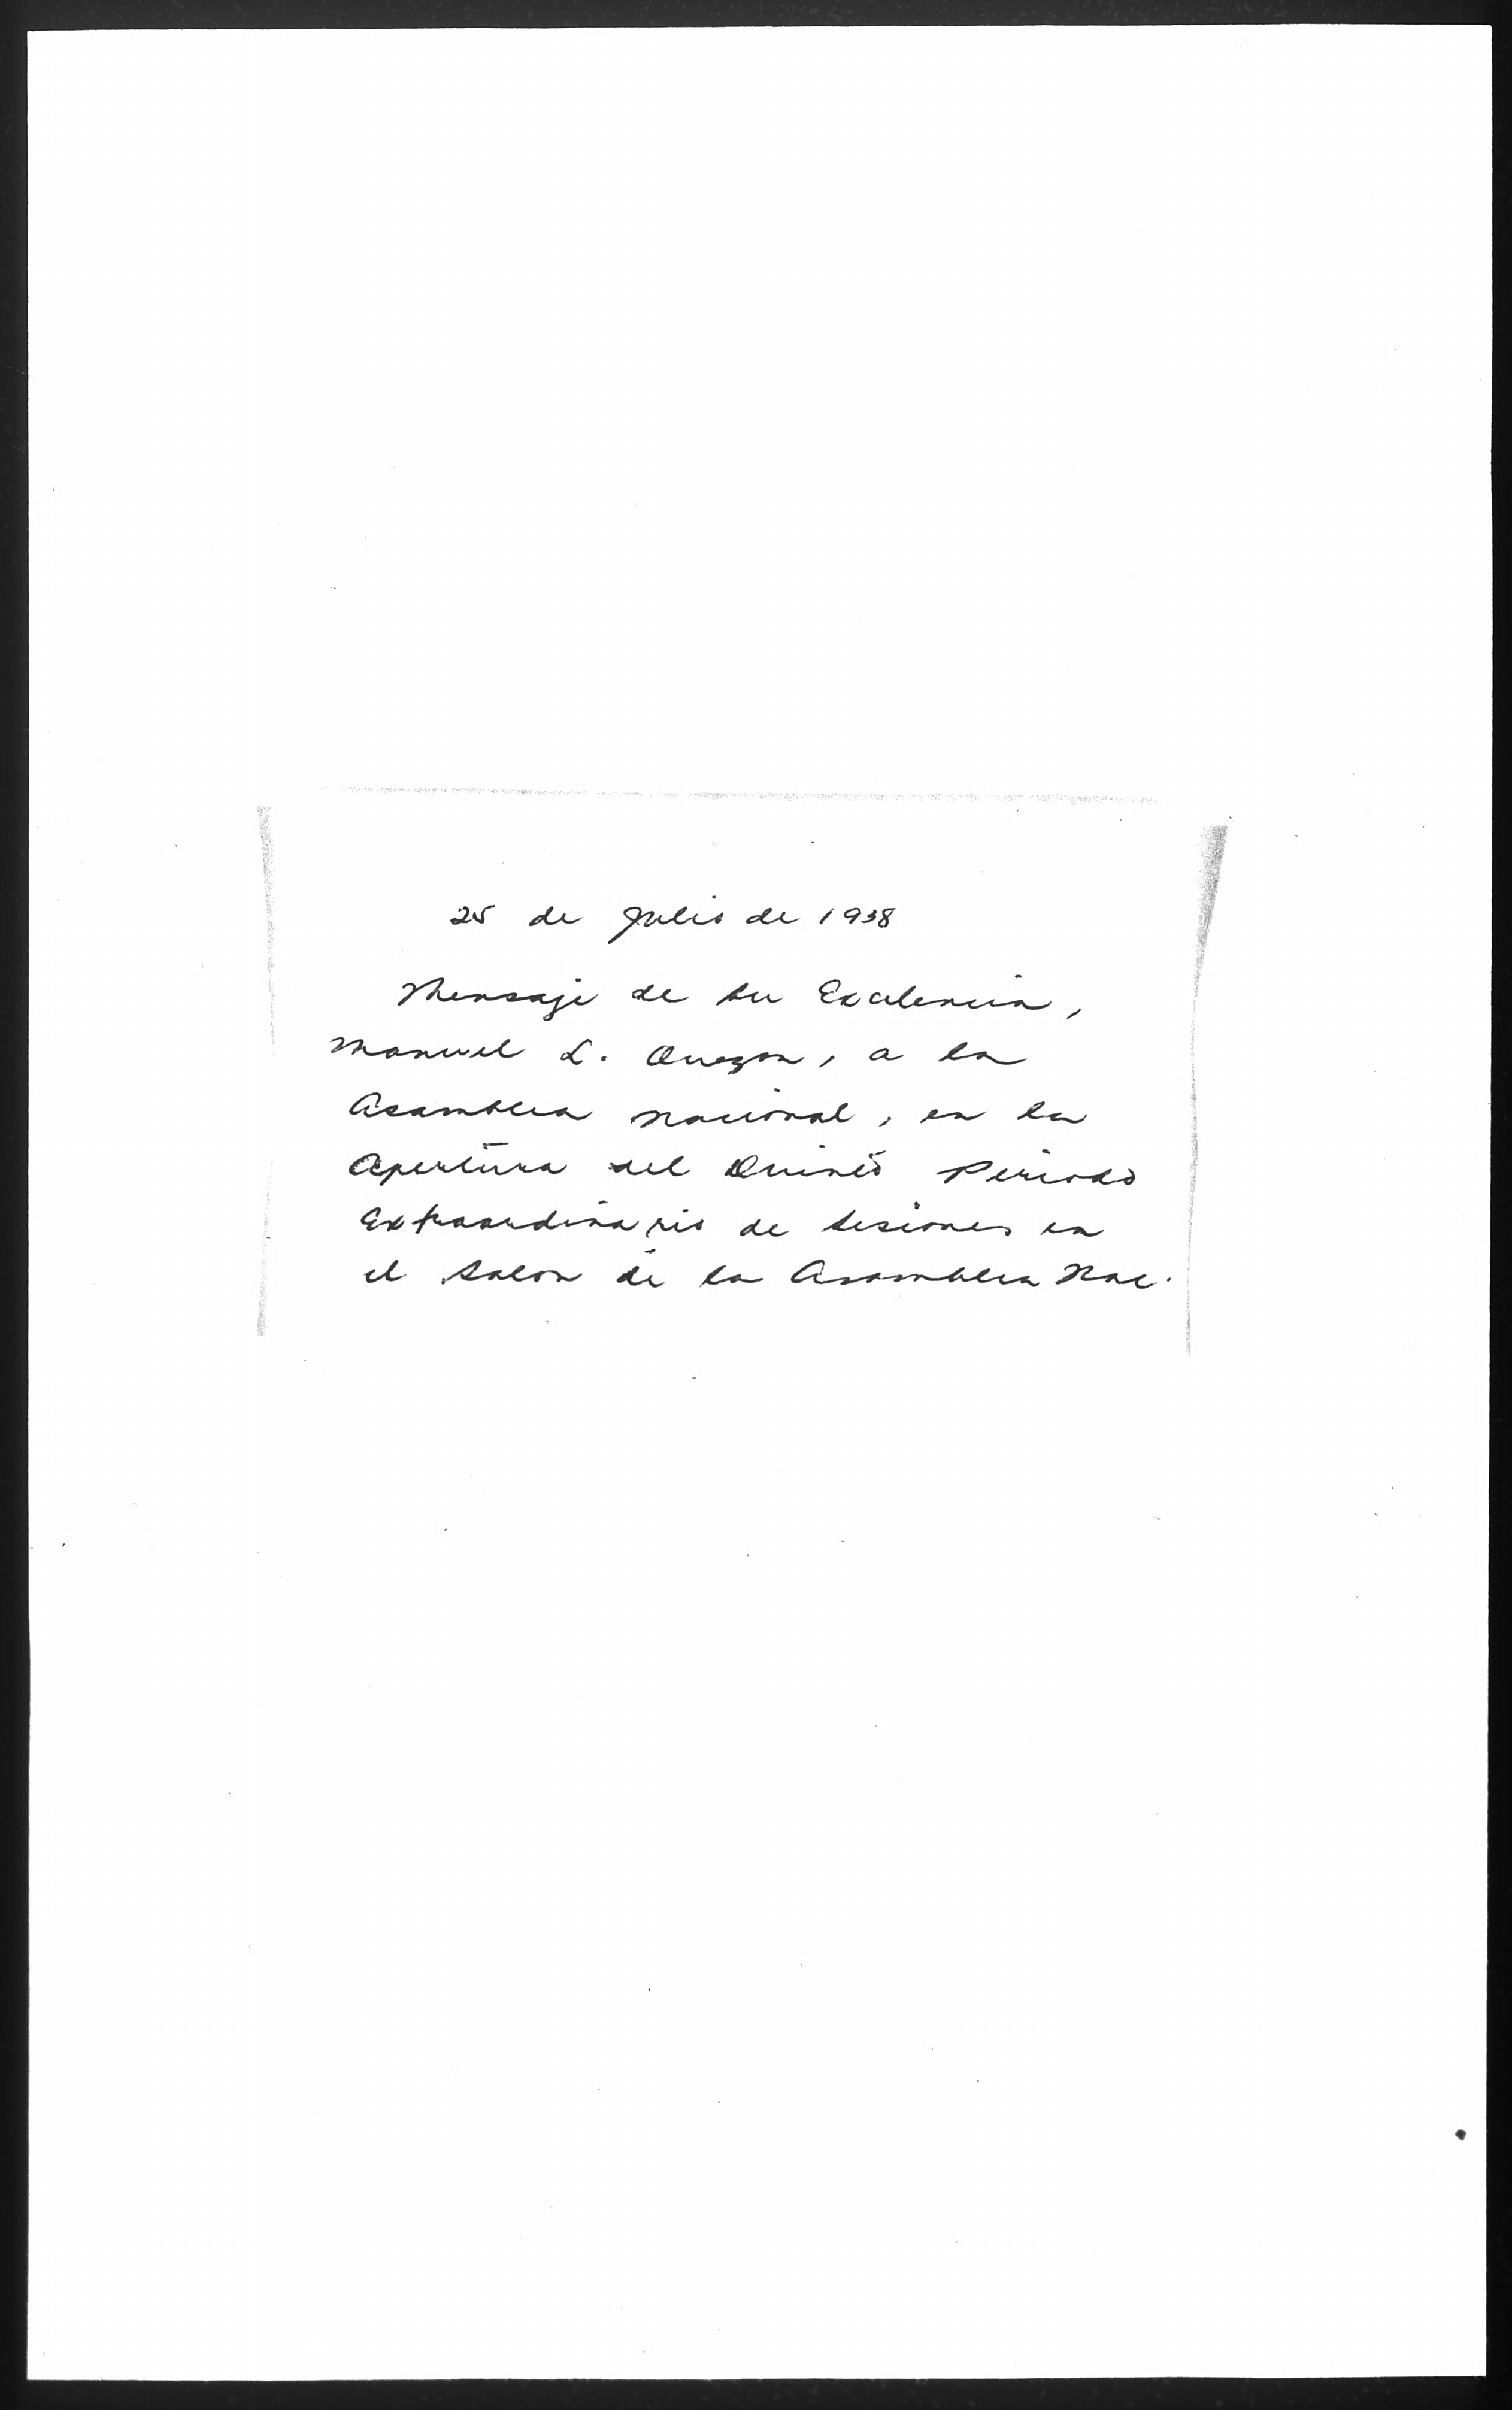 25 de Julio de 1938
Mensaje de Su Exelencia,
Manuel L. Quezon, a la
Asamblea Nacional, en la
Apertura del Quinto Periodo
Extraordinario de Sesiones en
el Salon de la Asamblea Nac.